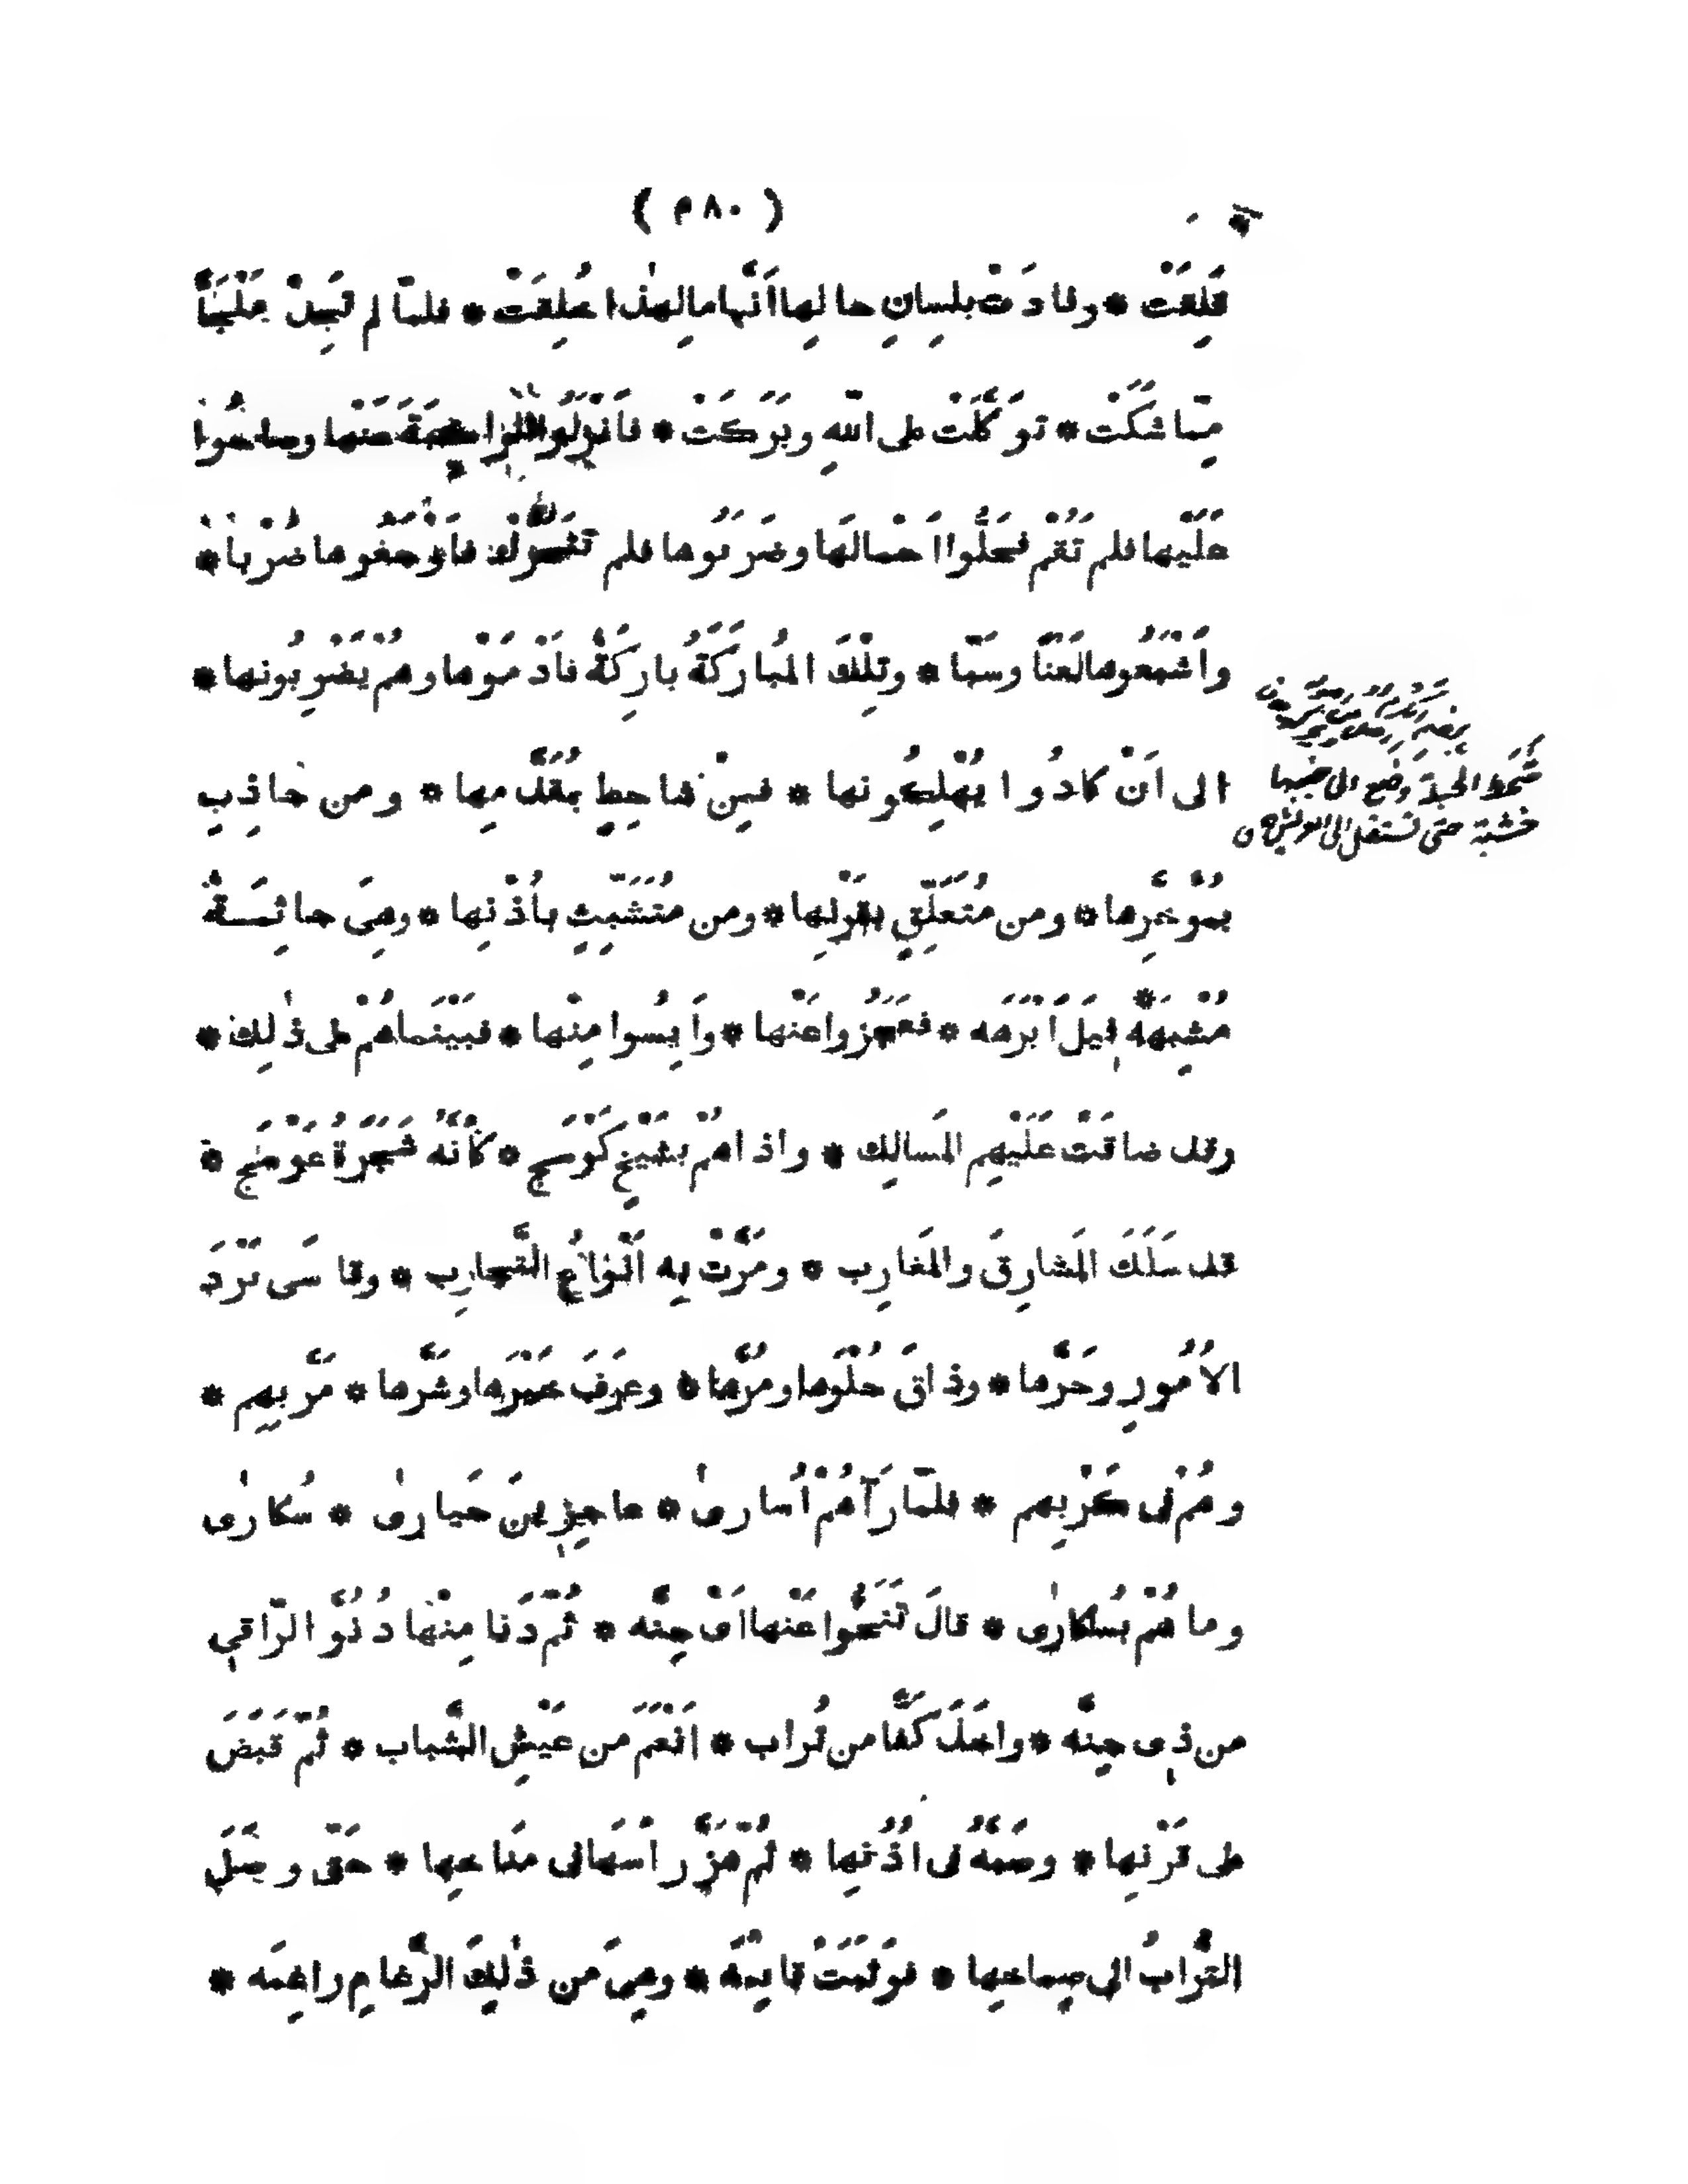 ( ٢٨٠ )
قَلِقَتْ * ونادَتْ بلِسانِ حالِها اَنَّها ما لِهذا خُلِقَتْ * فلمّا لم تُجِدْ مَلْجَأً
مِمّا شَكَتْ * تَوَكَّلَتْ على اللهِ وبَرَكَتْ * فاَنْزَلُوا عَنْها وصاحُوا
عَلَيْها فلم تَقُمْ فحَلُّوا اَحْمالَها وضَرَبُوها فلم تَتَحَرَّكْ فاَوْجَعُوها ضَرْبًا *
واَشْبَعُوها لَعْنًا وسَبّا * وتِلْكَ المُبارَكَةُ بارِكَةٌ فاَدْمَوْها وهُمْ يَضْرِبُونها *
الى اَنْ كادُوا يُهْلِكُونها * فمِنْ شاحِطٍ بمُقَدَّمِها * ومن جاذِبٍ
بمُؤَخَّرِها * ومن مُتَعَلِّقٍ بقَرْنِها * ومن مُتَشَبِّثٍ باُذْنِها * وهِيَ جاثِمَةٌ
مُشْبِهَةٌ فِيلَ اَبْرَهَه * فعَجَزُوا عَنْها * واَيِسُوا مِنْها * فبَيْنَما هُمْ على ذٰلِك *
وقد ضاقَتْ عَلَيْهِم المَسالِك * واذا هُمْ بشَيْخٍ كَوْسَجٍ * كاَنَّه شَجَرَةُ عَوْسَجٍ *
قد سَلَكَ المَشارِقَ والمَغارِب * ومَرَّتْ بِه اَنْواعُ التَّجارِب * وقاسَى بَرْدَ
الاُمُورِ وحَرَّها * وذاقَ حُلْوَها ومُرَّها * وعَرَفَ خَيْرَها وشَرَّها * مَرَّ بِهِم *
وهُمْ في كَرْبِهِم * فلمّا رَآهُمْ اُسارىٰ * عاجِزِينَ حَيارىٰ * سُكارىٰ
وما هُمْ بسُكارىٰ * قالَ تَنَحَّوا عَنْها اَىْ جِنَّه * ثُمّ دَنا مِنْها دُنُوَّ الرّاقي
من ذي جِنَّه * واخَذَ كَفًّا من تُراب * اَنْعَمَ من عَيْشِ الشَّباب * ثُمّ قَبَضَ
على قَرْنِها * وصَبَّهُ في اُذُنِها * ثُمّ هَزَّ رأسَها الى مُناخِها * حَتّى وصَلَ
التُّرابُ الى صِماخِها * فوَثَبَتْ قائِمَه * وهِيَ من ذٰلِكَ الرَّغامِ راغِمَه *
شَحَط الحبلة وضع الى جنبها
خشبة حتى تستقل الى العريش ن